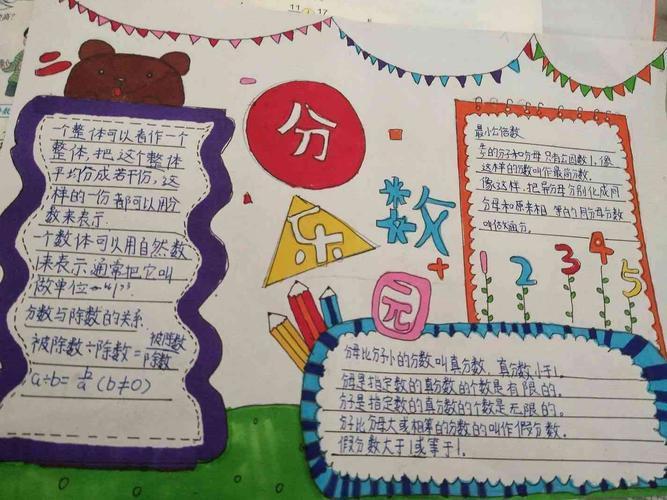 11 17
分
数
乐
园
一个整体可以看作一个
整体,把这个整体
平均份成若干份,这
样的一份都可以用分
数来表示.
一个数体可以用自然数
1来表示,通常把它叫
做单位
分数与除数的关系
被除数÷除数=被除数/除数
a÷b= (b≠0)
最小公倍数
的分子和分母只有公因数1,像
这样的数叫作最简分数.
像这样,把异分母分别化成同
分母和原来相等的分母分数
叫做通分.
1 2 3 4 5
分母比分子小的分数叫真分数,真分数小于1.
分母是指定数的真份数的个数是有限的.
分子是指定数的真分数的个数是无限的.
分子比分母大或相等的分数的叫作假分数.
假分数大于1或等于1.